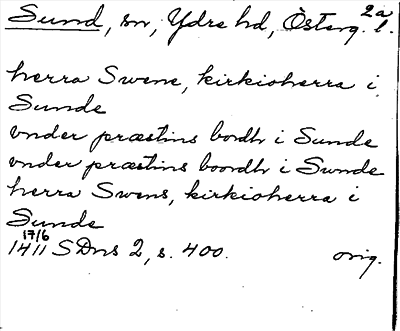 Sund, sn, Ydre hd, Österg. l. 2a
herra Swene, kirkioherra i
Sunde
vnder præstins bordh i Sunde
vnder præstins boordh i Swnde
herra Swens, kirkioherra i
Sunde
17/6
1411 SDns 2, s. 400. orig.